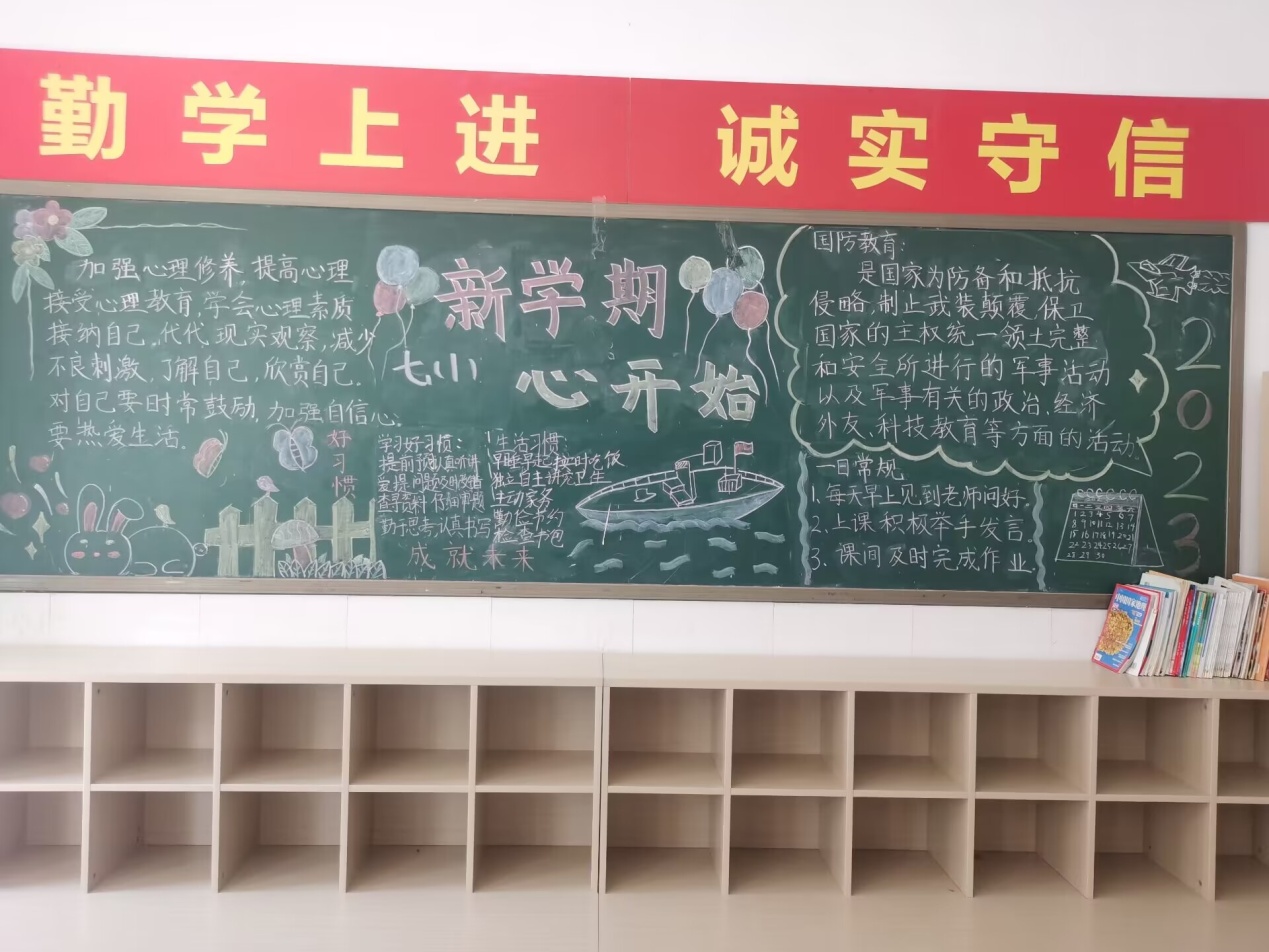 勤学上进 诚实守信
加强心理修养,提高心理
接受心理教育,学会心理素质
接纳自己,代代现实观察,减少
不良刺激,了解自己,欣赏自己.
对自己要时常鼓励,加强自信心.
要热爱生活.
新学期
七小
心开始
好习惯
学习好习惯:
提前预习认真听讲
查字典
勤于思考,认真书写
生活习惯:
早睡早起 按时吃饭
独立自主 讲究卫生
主动家务
勤俭节约
检查书包
成就未来
国防教育:
是国家为防备和抵抗
侵略,制止武装颠覆,保卫
国家的主权统一领土完整
和安全所进行的军事活动
以及军事有关的政治、经济
外友、科技教育等方面的活动.
一日常规
1.每天早上见到老师问好.
2.上课积极举手发言.
3.课间及时完成作业.
2023